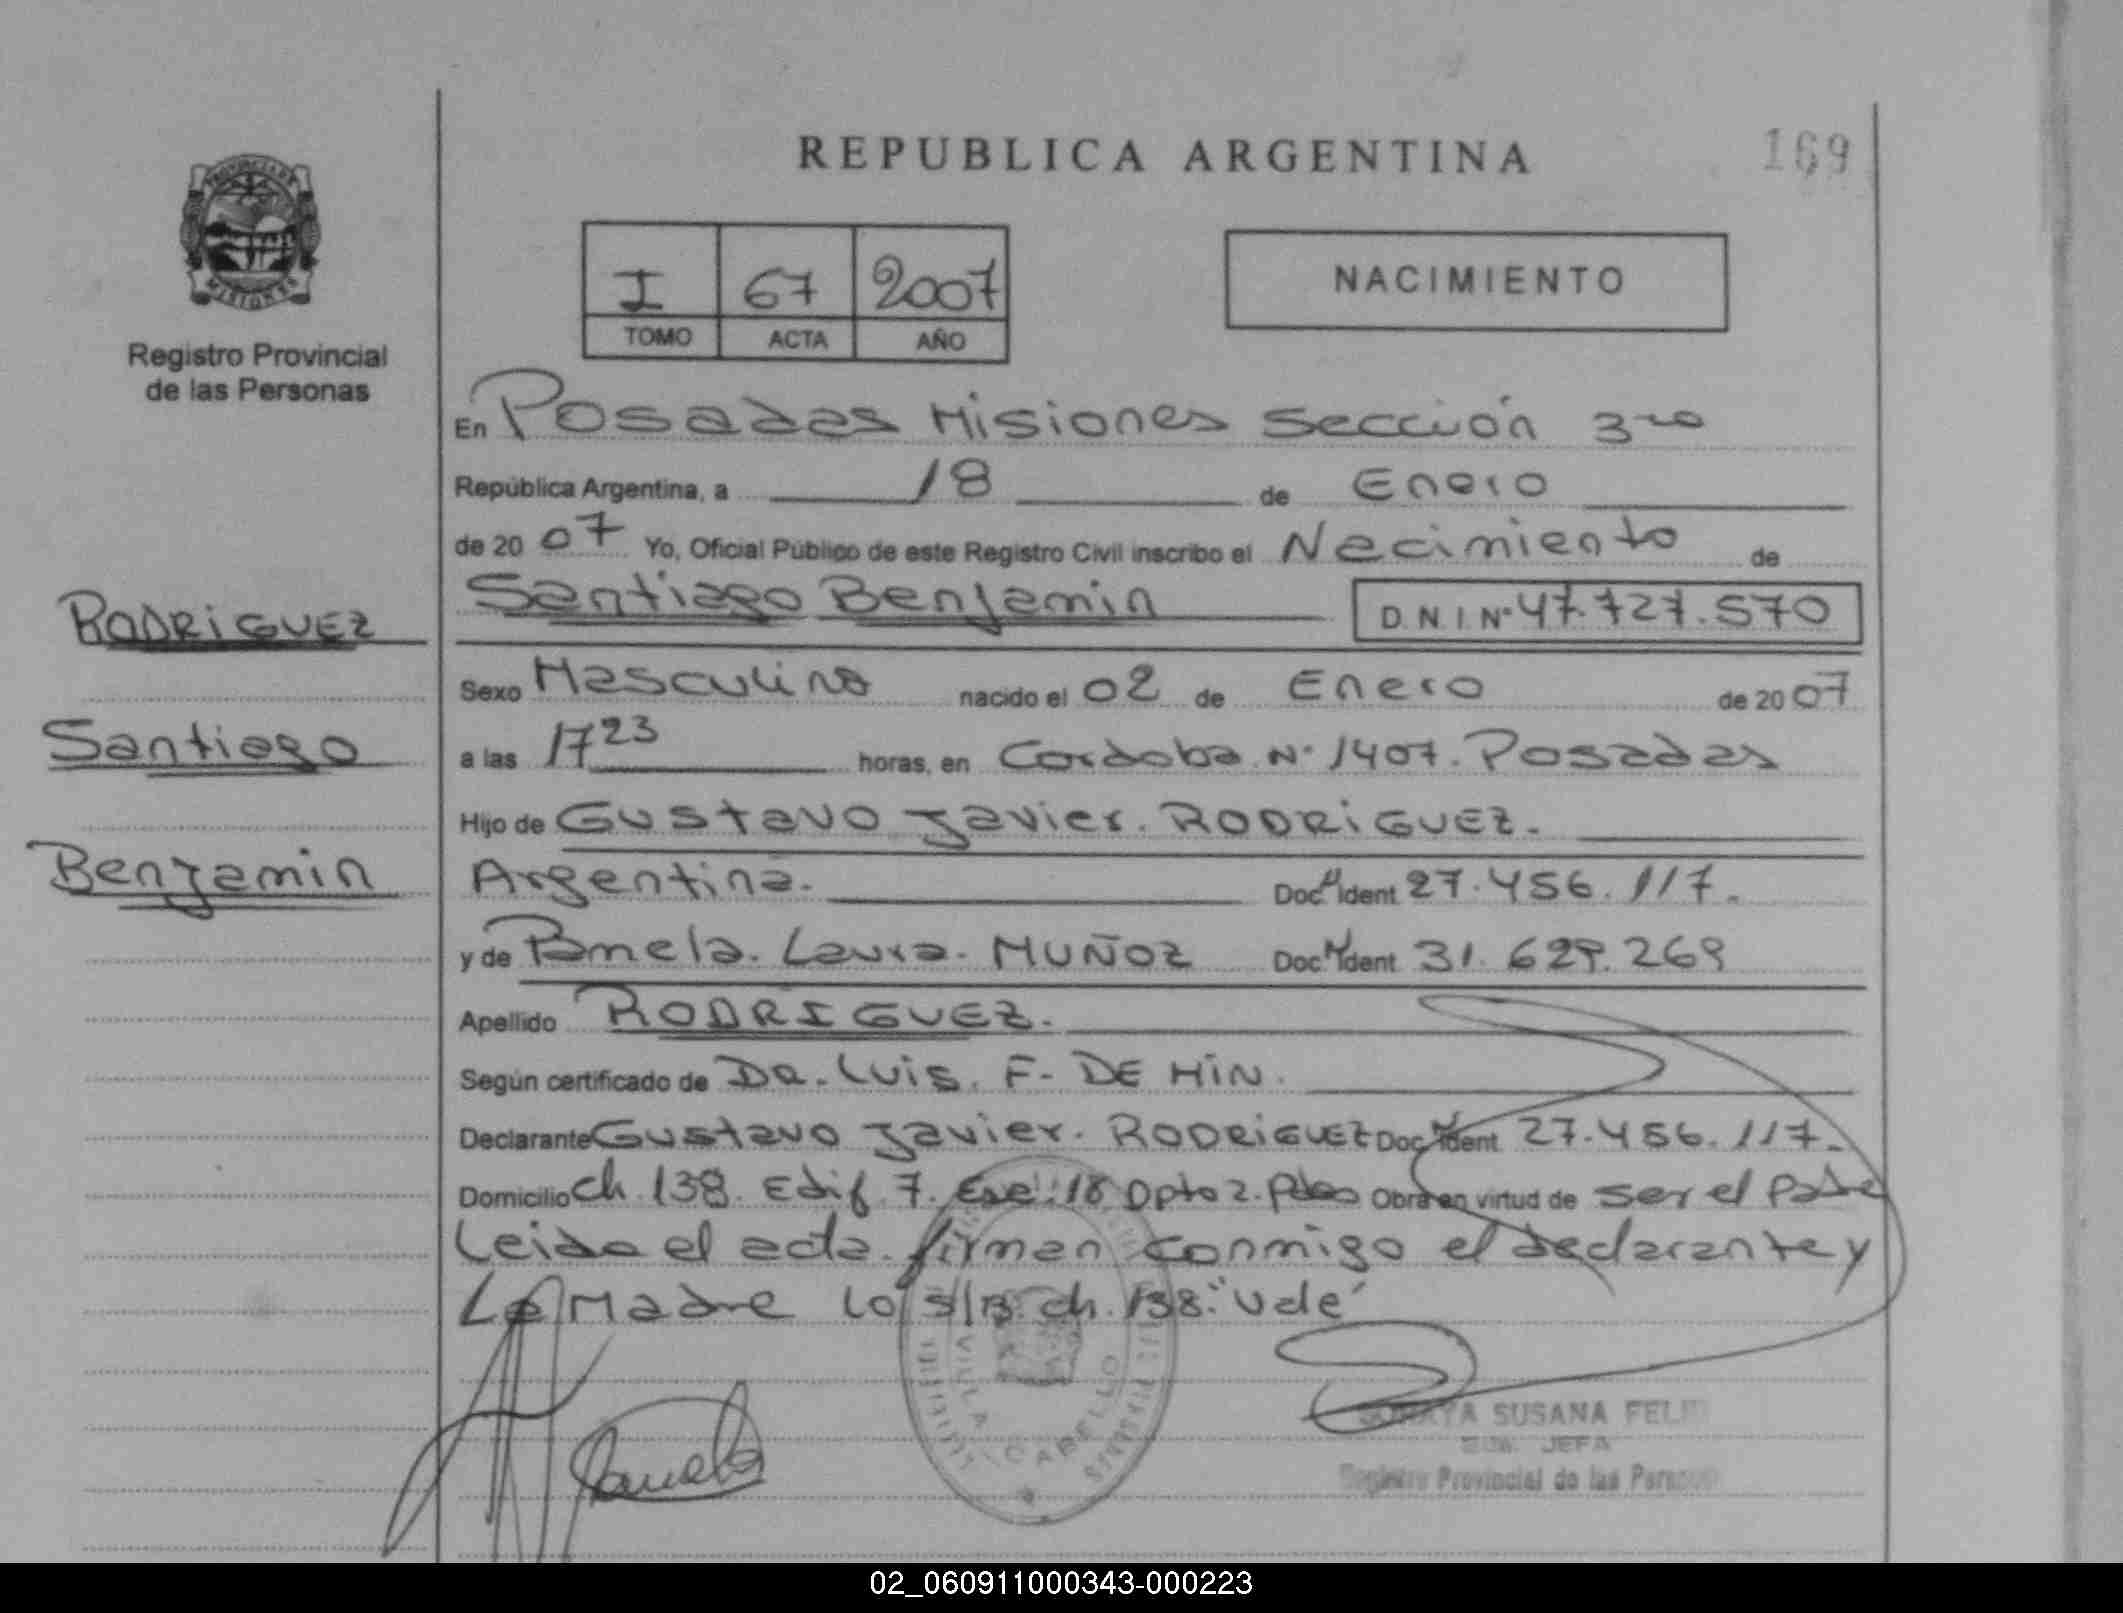 REPUBLICA ARGENTINA
169
PROVINCIA DE
MISIONES
Registro Provincial
de las Personas
I 67 2007
TOMO ACTA AÑO
NACIMIENTO
En Posadas Misiones Sección 3ra
República Argentina, a 18 de Enero
de 2007 Yo, Oficial Público de este Registro Civil inscribo el Nacimiento de
RODRIGUEZ
Santiago
Benjamin
Santiago Benjamin D.N.I. Nº 47.727.570
Sexo Masculino nacido el 02 de Enero de 2007
a las 17 23 horas, en Cordoba Nº 1407. Posadas
Hijo de Gustavo Javier. RODRIGUEZ.
Argentina. Doc. Ident 27.456.117.
y de Pamela. Laura. MUÑOZ Doc. Ident 31.629.269
Apellido RODRIGUEZ.
Según certificado de Dr. Luis. F. DE
Declarante Gustavo Javier. RODRIGUEZ Doc. Ident 27.456.117.
Domicilio ch. 138. Edif. 7. Esc. 18 Dpto 2. Pdas Obra en virtud de ser el Padre
Leida el acta. firman conmigo el declarante y
La Madre lo s/B. ch. 138. "Vale"
VILLA CABELLO
SUSANA
JEFA
Registro Provincial de las
02_060911000343-000223